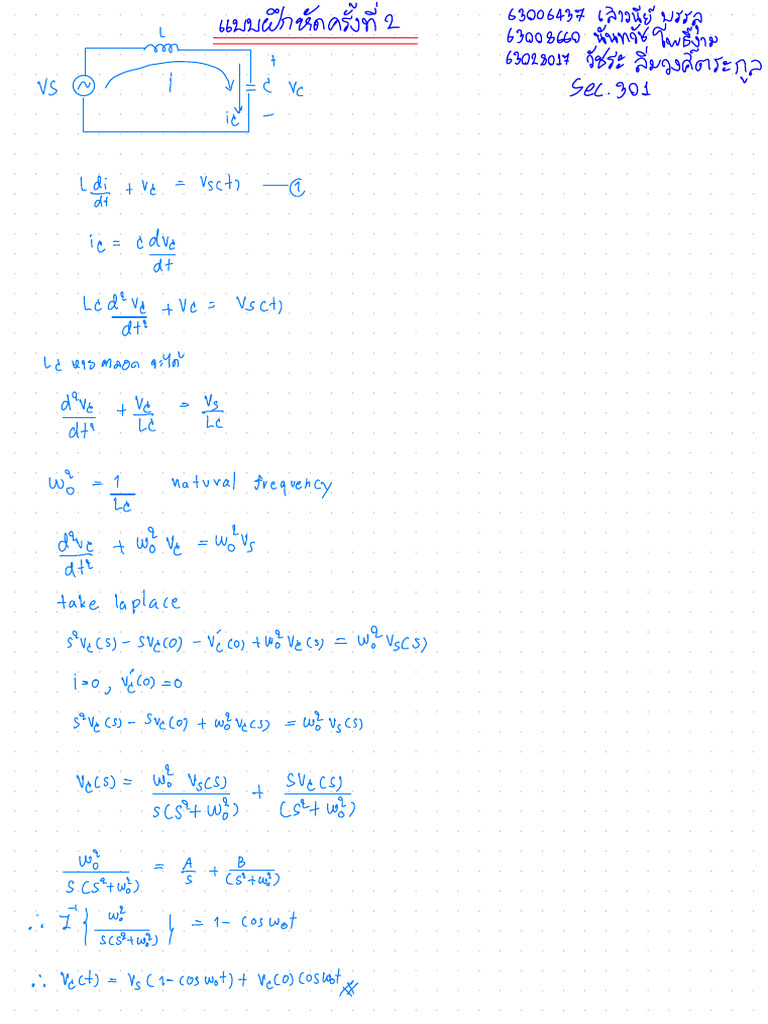 แบบฝึกหัดครั้งที่ 2
63006437 เสาวนีย์ บรรลุ
63008660 นันทวัช โพธิ์งาม
63028017 วัชระ ลิ่มวงศ์ตระกูล
Sec. 301
L
VS i + C VC
iC −
L di/dt + vC = VS(t) — ①
iC = C dvC/dt
LC d²vC/dt² + VC = VS(t)
LC หารตลอด จะได้
d²vC/dt² + VC/LC = VS/LC
ω₀² = 1/LC natural frequency
d²vC/dt² + ω₀² VC = ω₀² VS
take laplace
S²VC(S) − SVC(0) − VC′(0) + ω₀² VC(S) = ω₀² VS(S)
i=0, VC′(0)=0
S²VC(S) − SVC(0) + ω₀²VC(S) = ω₀² VS(S)
VC(S) = ω₀² VS(S)/S(S²+ω₀²) + SVC(S)/(S²+ω₀²)
ω₀²/S(S²+ω₀²) = A/S + B/(S²+ω₀²)
∴ L⁻¹{ω₀²/S(S²+ω₀²)} = 1 − cosω₀t
∴ VC(t) = VS(1−cosω₀t) + VC(0)cosω₀t #